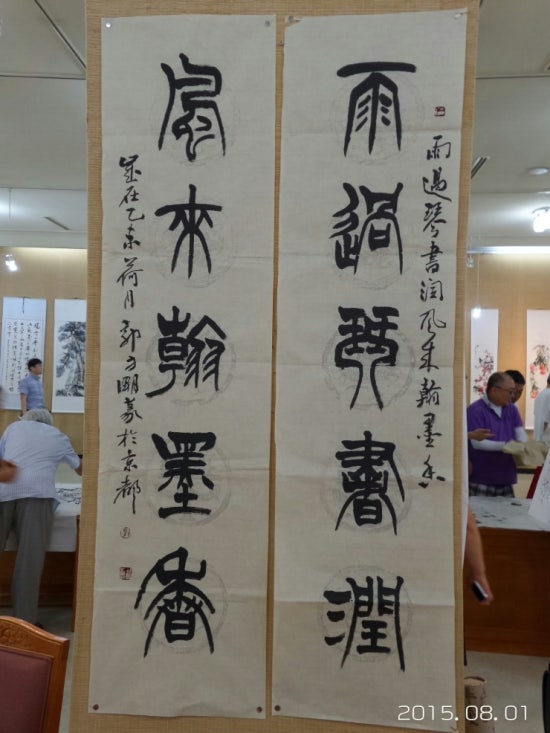 雨過琴書潤風來翰墨香
雨過琴書潤
風來翰墨香
歲在乙未荷月郭方明篆於京都
2015.08.01